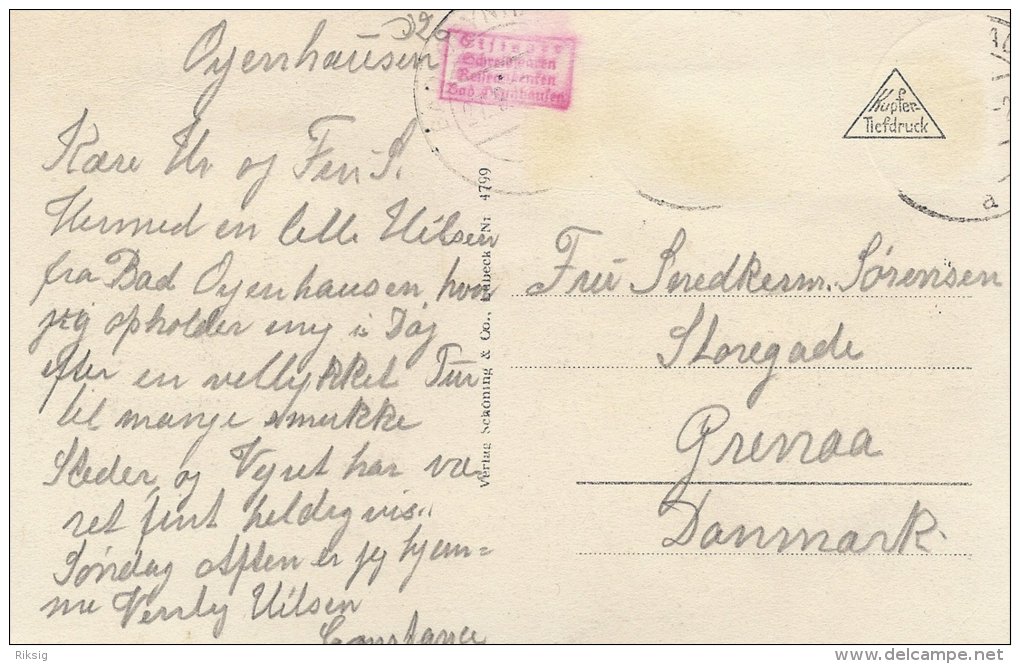 Oyenhausen
Kære Hr og Fru S.
Hermed en lille Hilsen
fra Bad Oyenhausen, hvor
jeg opholder mig i Dag
efter en vellykket Tur
til mange smukke
Steder, og Vejret har væ-
ret fint heldigvis.
Søndag Aften er jeg hjem=
me Venlig Hilsen
Constance
Schreibwaren
Reiseandenken
Verlag Schöning & Co., Lübeck Nr 4799
Kupfer-
Tiefdruck
Fru Snedkerm. Sørensen
Storegade
Grenaa
Danmark.
Riksig
www.delcampe.net